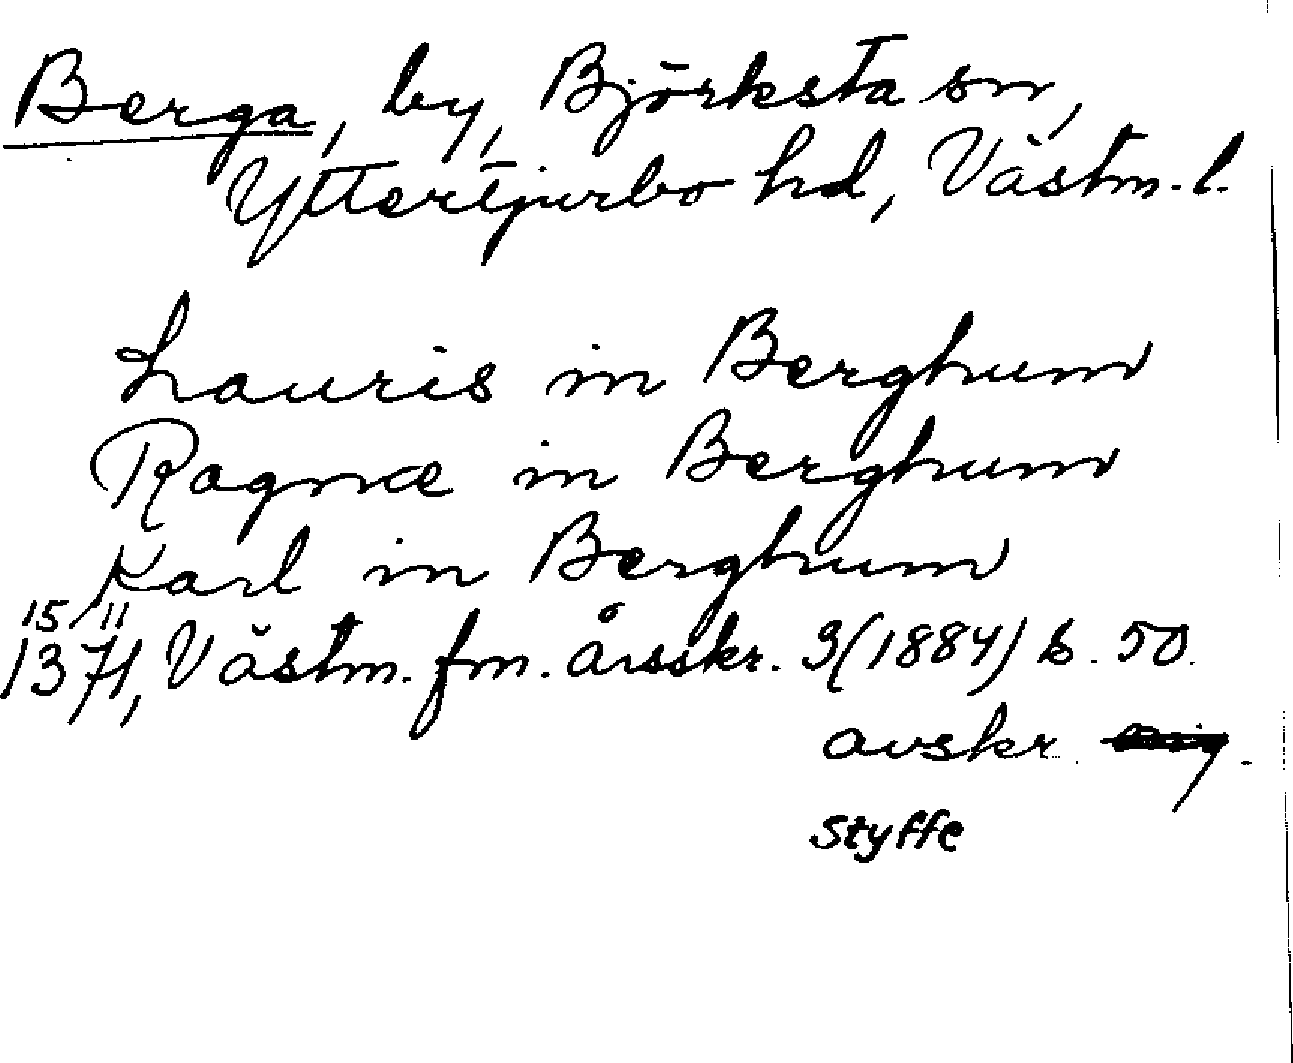 Berga, by, Björksta sn,
Yttertjurbo hd, Västm. l.
Lauris in Berghum
Ragnæ in Berghum
Karl in Berghum
15/11
1371, Västm. fm. årsskr. 3 (1884) s. 50.
avskr.
Styffe